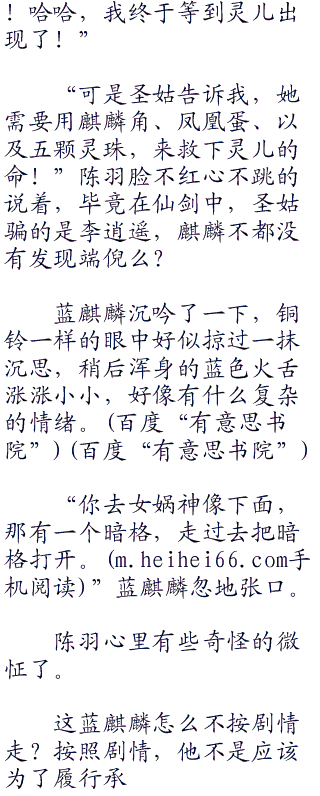 ！哈哈，我终于等到灵儿出
现了！”
“可是圣姑告诉我，她
需要用麒麟角、凤凰蛋、以
及五颗灵珠，来救下灵儿的
命！”陈羽脸不红心不跳的
说着，毕竟在仙剑中，圣姑
骗的是李逍遥，麒麟不都没
有发现端倪么？
蓝麒麟沉吟了一下，铜
铃一样的眼中好似掠过一抹
沉思，稍后浑身的蓝色火舌
涨涨小小，好像有什么复杂
的情绪。(百度“有意思书
院”)(百度“有意思书院”)
“你去女娲神像下面，
那有一个暗格，走过去把暗
格打开。(m.heihei66.com手
机阅读)”蓝麒麟忽地张口。
陈羽心里有些奇怪的微
怔了。
这蓝麒麟怎么不按剧情
走？按照剧情，他不是应该
为了履行承